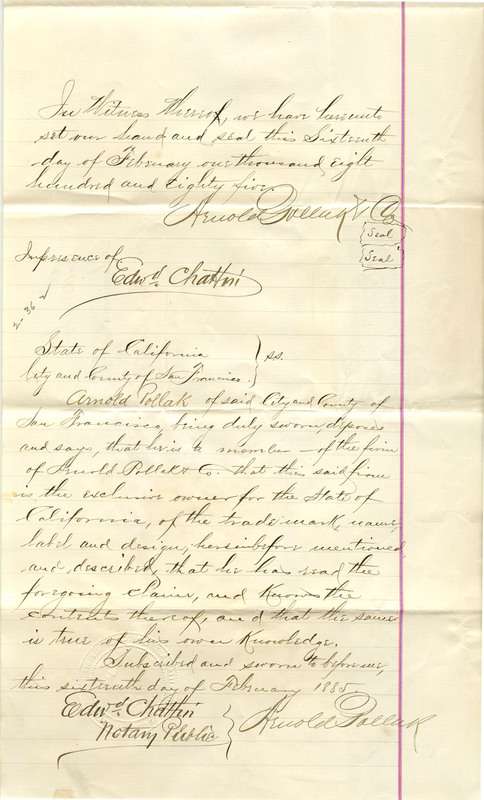 In Witness Whereof, we have hereunto
set our hand and seal this Sixteenth
day of February one thousand eight
hundred and eighty five.
Arnold Pollak & Co
Seal
Seal
In presence of
Edwd. Chattin
2-36
State of California } s.s.
City and County of San Francisco.
Arnold Pollak of said City and County of
San Francisco, being duly sworn, deposes
and says, that he is a member - of the firm
of Arnold Pollak & Co. that this said firm
is the exclusive owner for the State of
California, of the trade mark, name,
label and design, hereinbefore mentioned
and described, that he has read the
foregoing claim, and knows the
contents thereof, and that the same
is true of his own knowledge.
Subscribed and sworn to before me,
this sixteenth day of February 1885.
Edwd. Chattin } Arnold Pollak
Notary Public